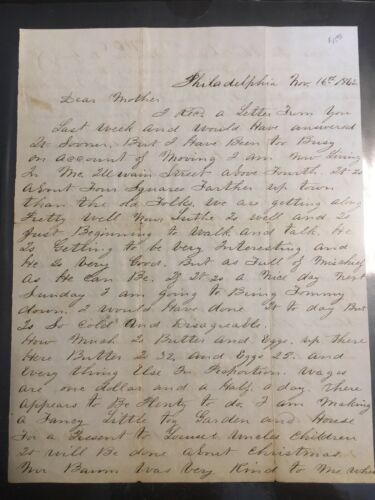 Philadelphia Nov. 16th 1862
Dear Mother
I Rec. a Letter From You
Last week and would Have answered
It Sooner. But I Have Been too Busy
on account of Moving I am Now Living
In Mc Ilwain Street above Fourth. It is
about Four Squares Farther up town
than the old Folks, we are getting along
Pretty Well Now is well and is
Just Beginning to Walk and talk. He
Is Getting to be very Interesting and
He Is very Good. But as Full of Mischief
as He Can Be. If It is a Nice day Next
Sunday I am going to Bring Tommy
down. I would Have done It to day But
Is So Cold and Disagreable.
How Much Is Butter and Eggs. up there
Here Butter Is 32, and Eggs 25. and
Every thing Else In Proportion. wages
are one dollar and a Half a day. there
appears to Be Plenty to do. I am Making
a Fancy Little toy Garden and House
For a Present to Uncles Children
It will Be done about Christmas.
Mr Was Very Kind to Me when